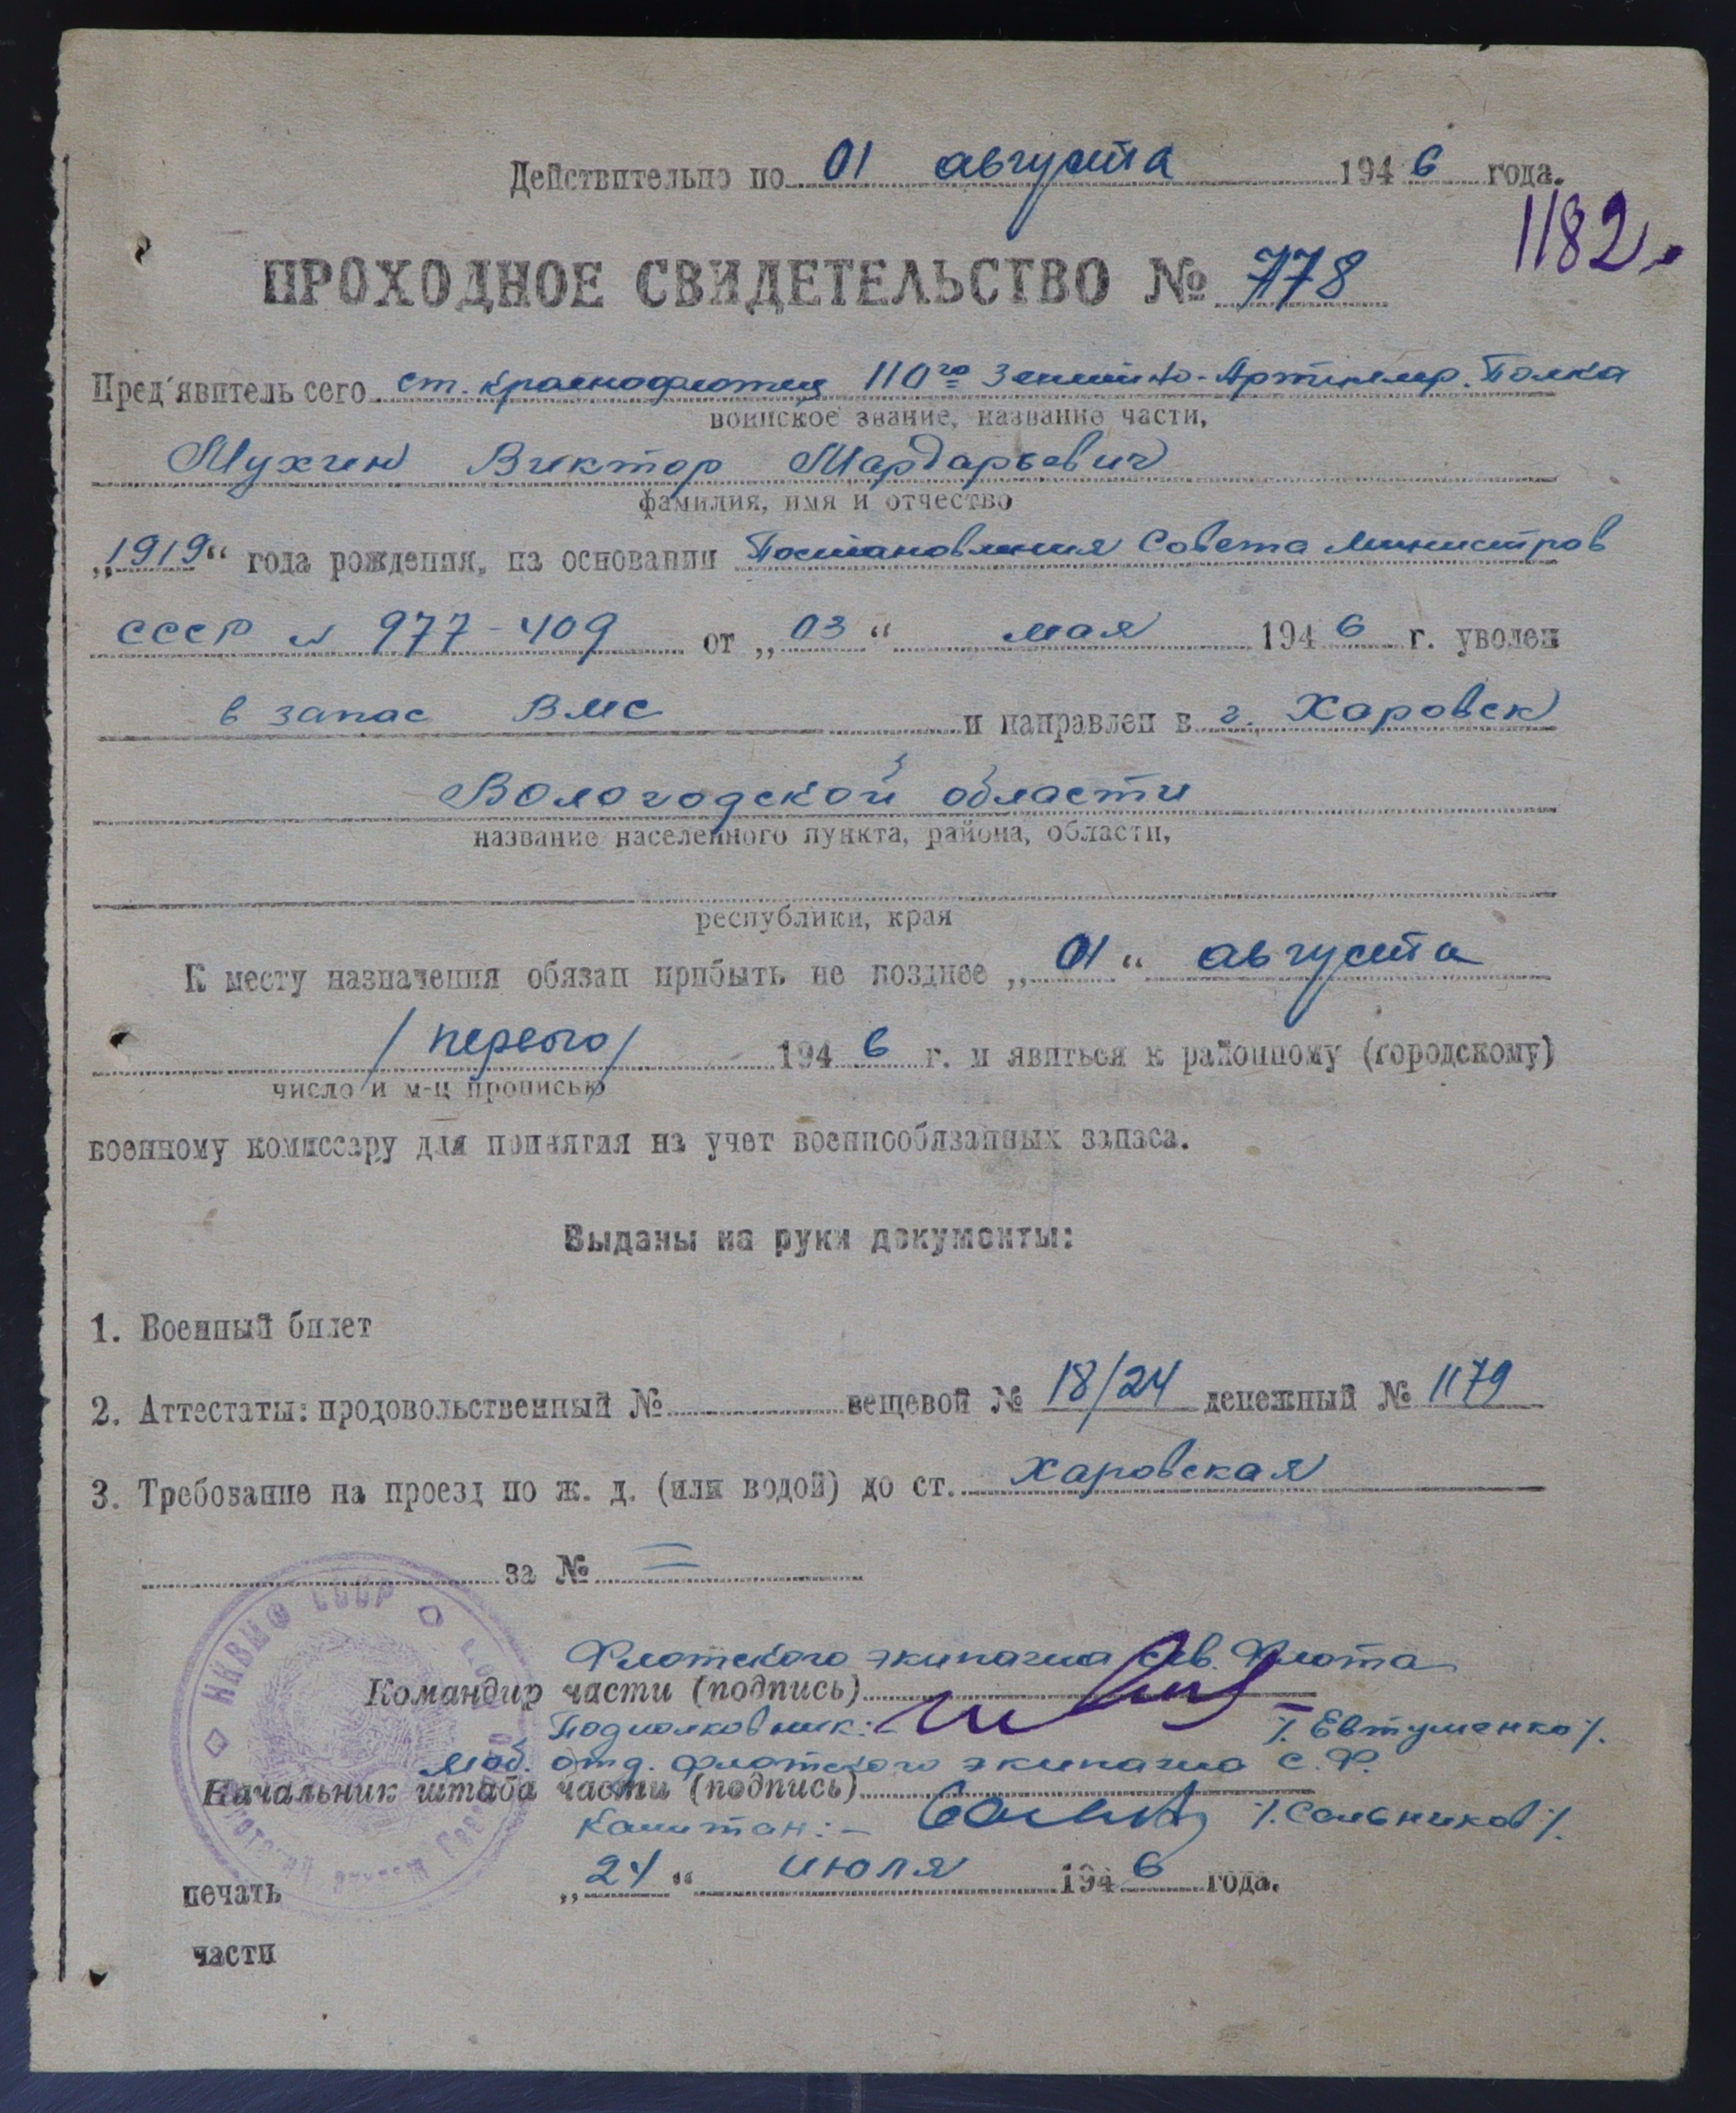 Действительно по 01 августа 1946 года.
1182.
ПРОХОДНОЕ СВИДЕТЕЛЬСТВО № 778
Пред'явитель сего ст. краснофлотец 110го Зенитно-Артиллер. Полка
воинское звание, название части,
Мухин Виктор Мардарьевич
фамилия, имя и отчество
„1919“ года рождения, на основании Постановления Совета Министров
СССР № 977-409 от „03“ мая 1946 г. уволен
в запас ВМС и направлен в г. Харовск
Вологодской области
название населенного пункта, района, области,
республики, края
К месту назначения обязан прибыть не позднее „01“ августа
/первого/ 1946 г. и явиться к районному (городскому)
число и м-ц прописью
военному комиссару для принятия на учет военнообязанных запаса.
Выданы на руки документы:
1. Военный билет
2. Аттестаты: продовольственный № вещевой № 18/24 денежный № 1179
3. Требование на проезд по ж. д. (или водой) до ст. Харовская
за № =
НКВМФ СССР
Флотского экипажа Сев. Флота
Командир части (подпись)
Подполковник:- /. Евтушенко /.
Моб. отд. флотского экипажа С.Ф.
Начальник штаба части (подпись)
Капитан:- /. Сальников /.
„24“ июля 1946 года.
печать
части